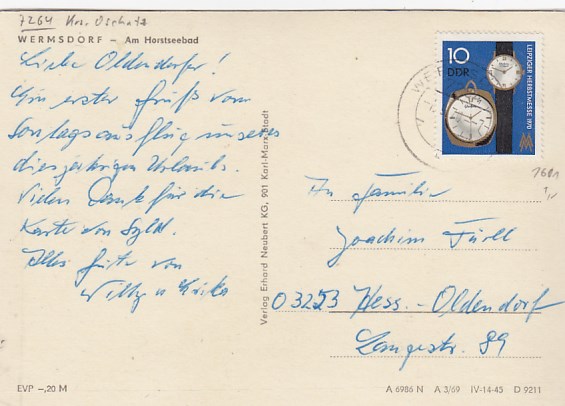 7264 Krs. Oschatz
WERMSDORF – Am Horstseebad
Liebe Oldendorfer!
Ein erster Gruß vom
Sonntagsausflug unseres
diesjährigen Urlaubs.
Vielen Dank für die
Karte von Sylt.
Alles Gute von
Willy u. Erika
Verlag Erhard Neubert KG, 901 Karl-Marx-Stadt
10
DDR
LEIPZIGER HERBSTMESSE 1970
1601
An Familie
Joachim Fürll
03253 Hess.-Oldendorf
Langestr. 89
EVP –,20 M
A 6986 N A 3/69 IV-14-45 D 9211